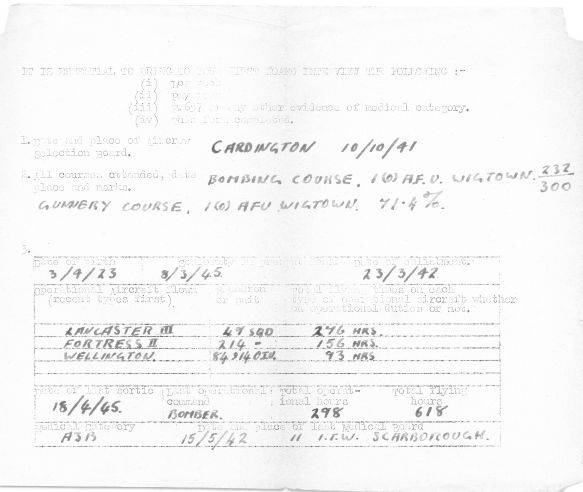 IT IS ESSENTIAL TO BRING TO YOUR FIRST BOARD INTERVIEW THE FOLLOWING :-
(i)
(ii) pay
(iii) any other evidence of medical category.
(iv) this form completed.
1. Date and place of Aircrew CARDINGTON 10/10/41
Selection Board.
2. All courses attended, date BOMBING COURSE, 1(O) A.F.U. WIGTOWN. 232/300
place and marks.
GUNNERY COURSE, 1(O) AFU WIGTOWN. 71.4%.
3.
Date of birth Date of enlistment.
3/9/23 8/3/45. 23/3/42
Operational Aircraft flown Squadron Total flying times on each
(recent types first) or unit type of operational aircraft whether
on operational duties or not.
LANCASTER III 49 SQD 276 HRS.
FORTRESS II 214 - 156 HRS.
WELLINGTON. 93 HRS
Date of last sortie Last operational Total operat- Total flying
command ional hours hours
18/4/45. BOMBER. 298 618
Medical category Date and place of last medical board
A3B 15/5/42 11 I.T.W. SCARBOROUGH.